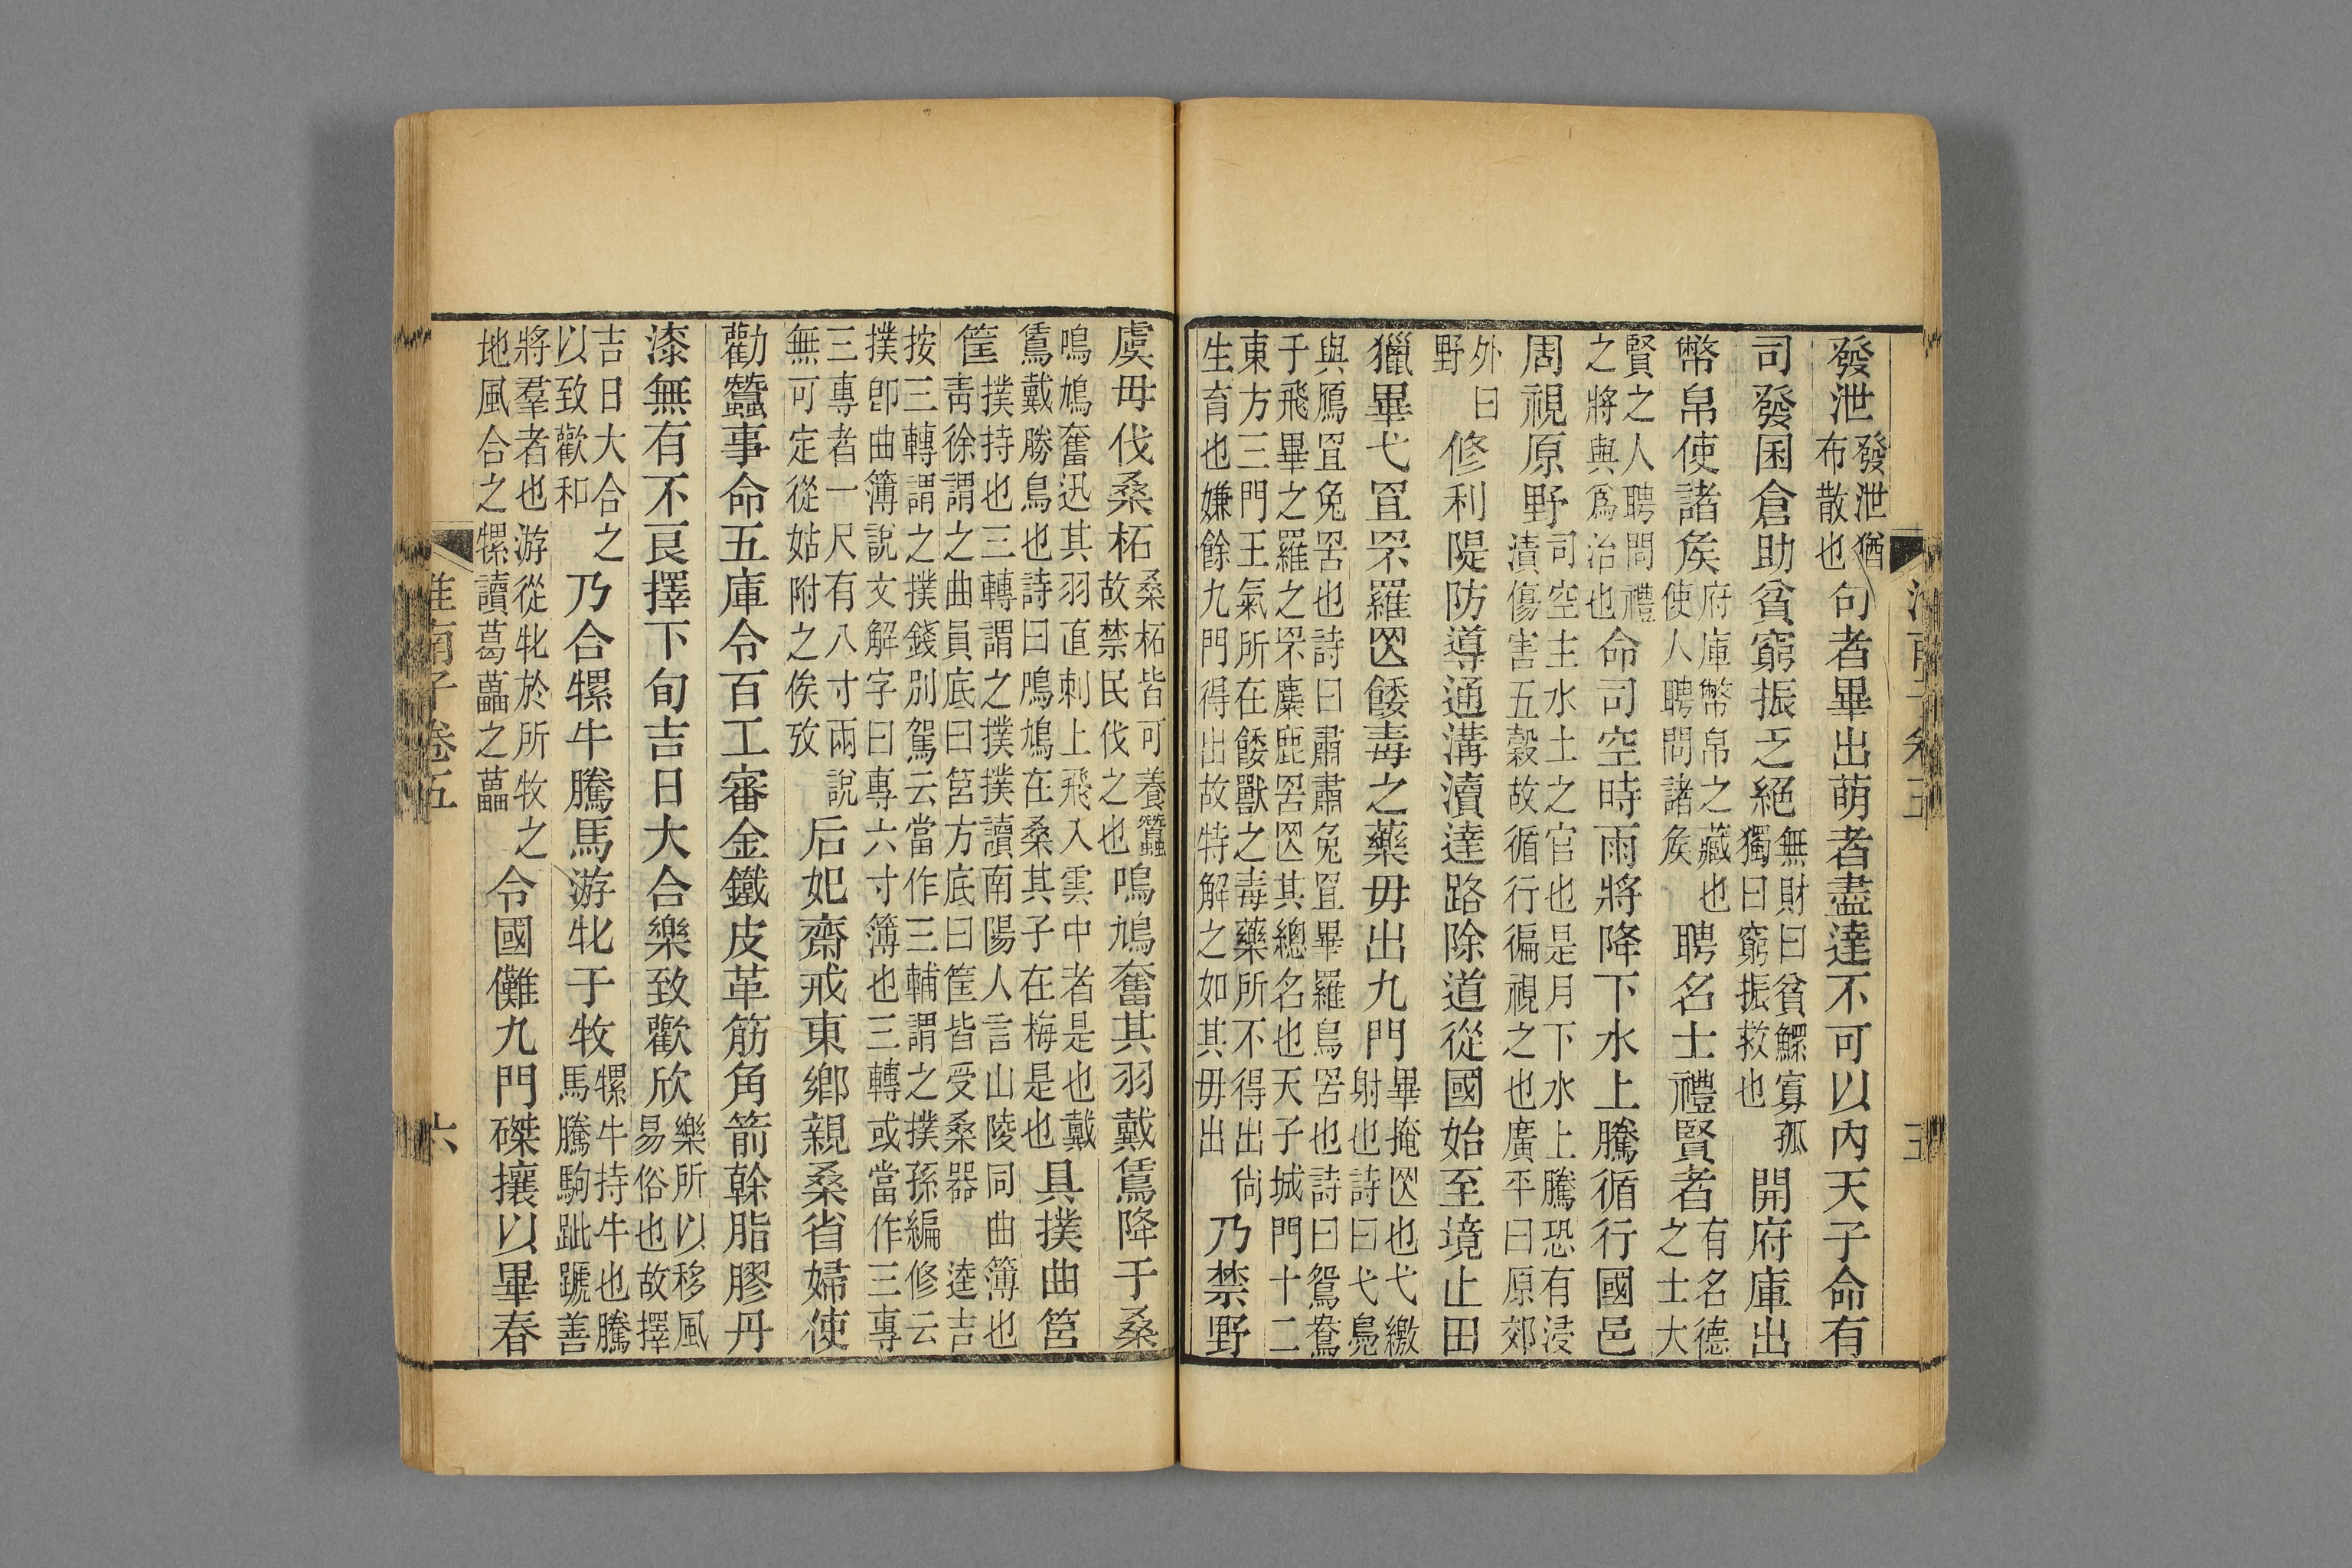 發泄發泄猶布散也句者畢出萌者盡達不可以內天子命有
司發囷倉助貧窮振乏絕無財曰貧鰥寡孤獨曰窮振救也開府庫出
幣帛使諸矦府庫幣帛之藏也使人聘問諸矦聘名士禮賢者有名德之士大
賢之人聘問禮之將與爲治也命司空時雨將降下水上騰循行國邑
周視原野司空主水土之官也是月下水上騰恐有浸漬傷害五穀故循行徧視之也廣平曰原郊
外曰野修利隄防導通溝瀆達路除道從國始至境止田
獵畢弋罝罘羅罔餧毒之藥毋出九門畢掩罔也弋繳射也詩曰弋鳧
與鴈罝兔罟也詩曰肅肅兔罝畢羅鳥罟也詩曰鴛鴦
于飛畢之羅之罘麋鹿罟罔其總名也天子城門十二
東方三門王氣所在餧獸之毒藥所不得出尙
生育也嫌餘九門得出故特解之如其毋出乃禁野
虞毋伐桑柘桑柘皆可養蠶故禁民伐之也鳴鳩奮其羽戴鵀降于桑
鳴鳩奮迅其羽直刺上飛入雲中者是也戴鵀戴勝鳥也詩曰鳲鳩在桑其子在梅是也具撲曲筥
筐撲持也三轉謂之撲撲讀南陽人言山陵同曲簿也靑徐謂之曲員底曰筥方底曰筐皆受桑器逵吉
按三轉謂之撲錢別駕云當作三輔謂之撲孫編修云
撲卽曲簿說文解字曰專六寸簿也三轉或當作三專
三專者一尺有八寸兩說
無可定從姑附之俟攷后妃齋戒東鄉親桑省婦使
勸蠶事命五庫令百工審金鐵皮革筋角箭榦脂膠丹
漆無有不良擇下旬吉日大合樂致歡欣樂所以移風易俗也故擇
吉日大合之以致歡和乃合犦牛騰馬游牝于牧犦牛持牛也騰馬騰駒跐蹏善
將羣者也游從牝於所牧之地風合之犦讀葛藟之藟令國儺九門磔攘以畢春
淮南子卷五
六